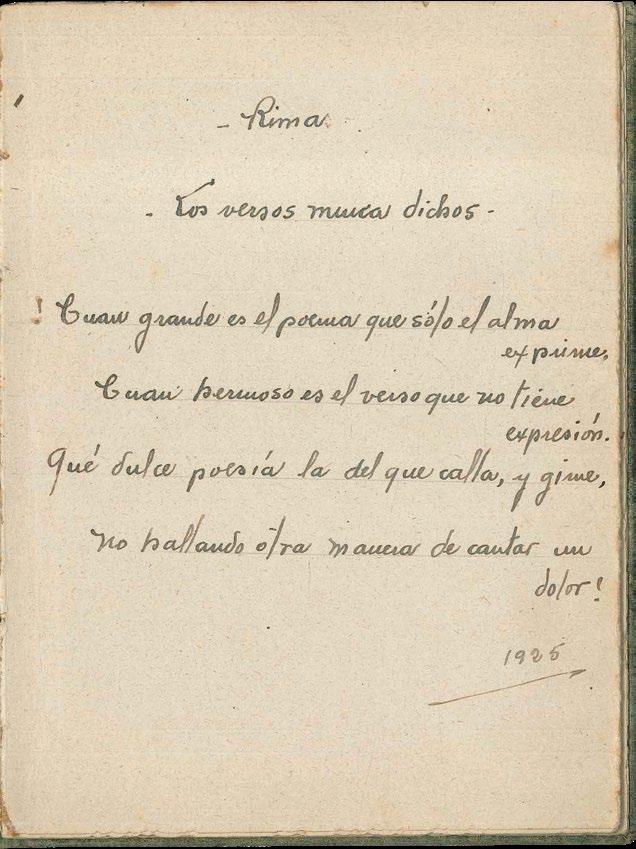 - Rima
- Los versos nunca dichos -
! Cuan grande es el poema que sólo el alma
exprime,
Cuan hermoso es el verso que no tiene
expresión.
Qué dulce poesía la del que calla, y gime,
no hallando ótra manera de cantar un
dolor!
1925